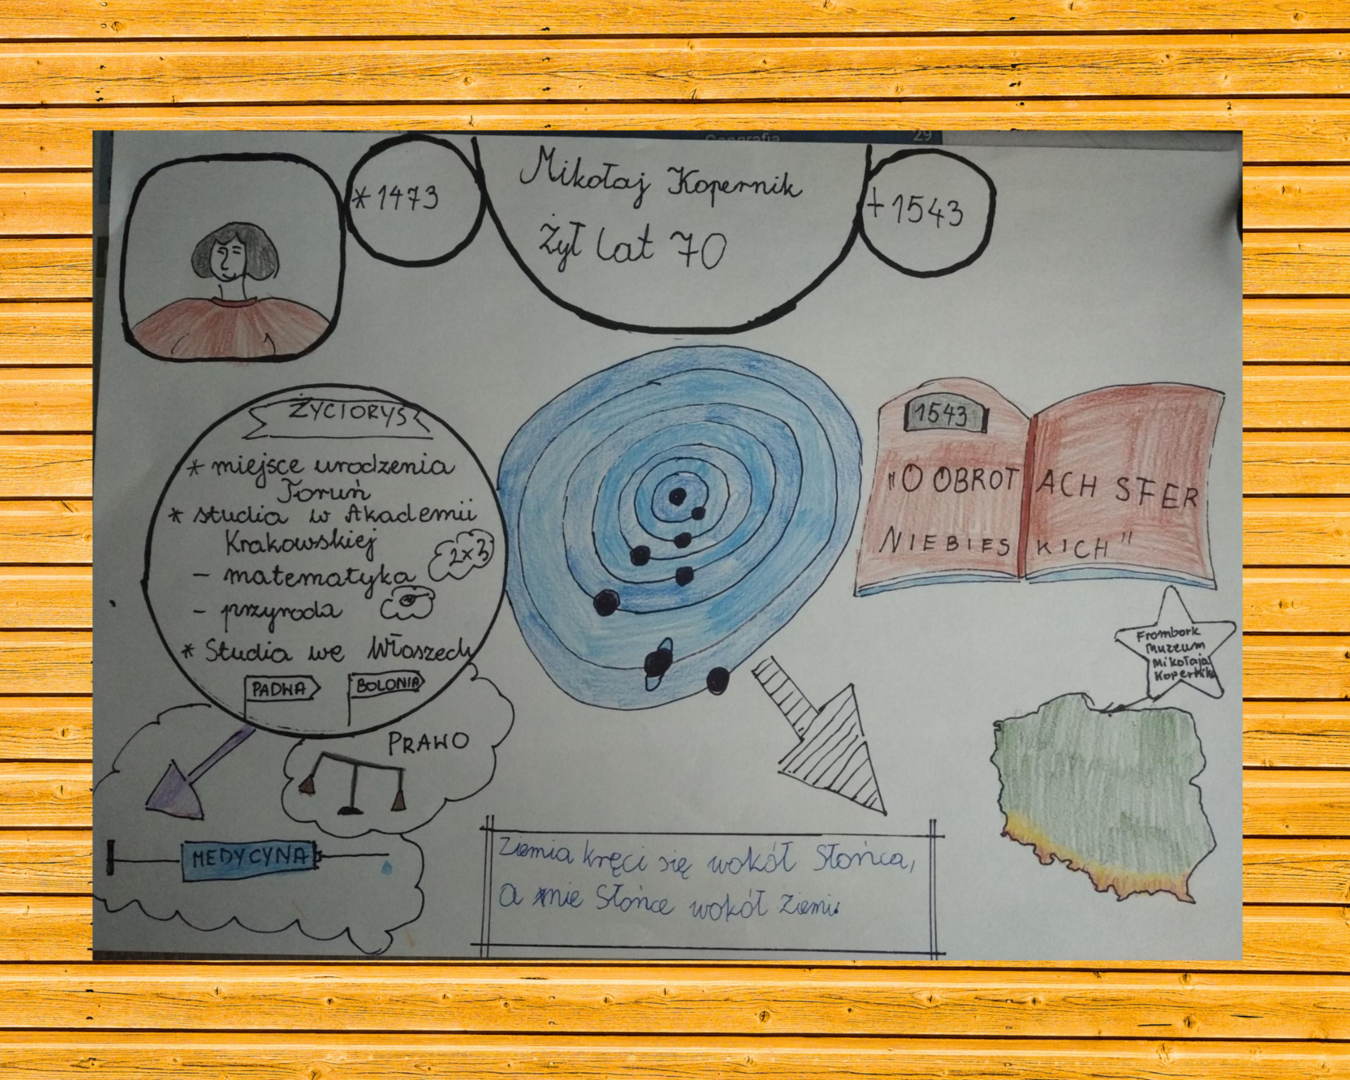 Geografia
29
* 1473
Mikołaj Kopernik
Żył lat 70
+ 1543
ŻYCIORYS
* miejsce urodzenia
Toruń
* studia w Akademii
Krakowskiej
- matematyka
2x3
- przyroda
* Studia we Włoszech
PADWA
BOLONIA
PRAWO
MEDYCYNA
1543
"O OBROT ACH SFER
NIEBIES KICH"
Frombork
Muzeum
Mikołaja
Kopernika
Ziemia kręci się wokół Słońca,
a nie Słońce wokół Ziemi.